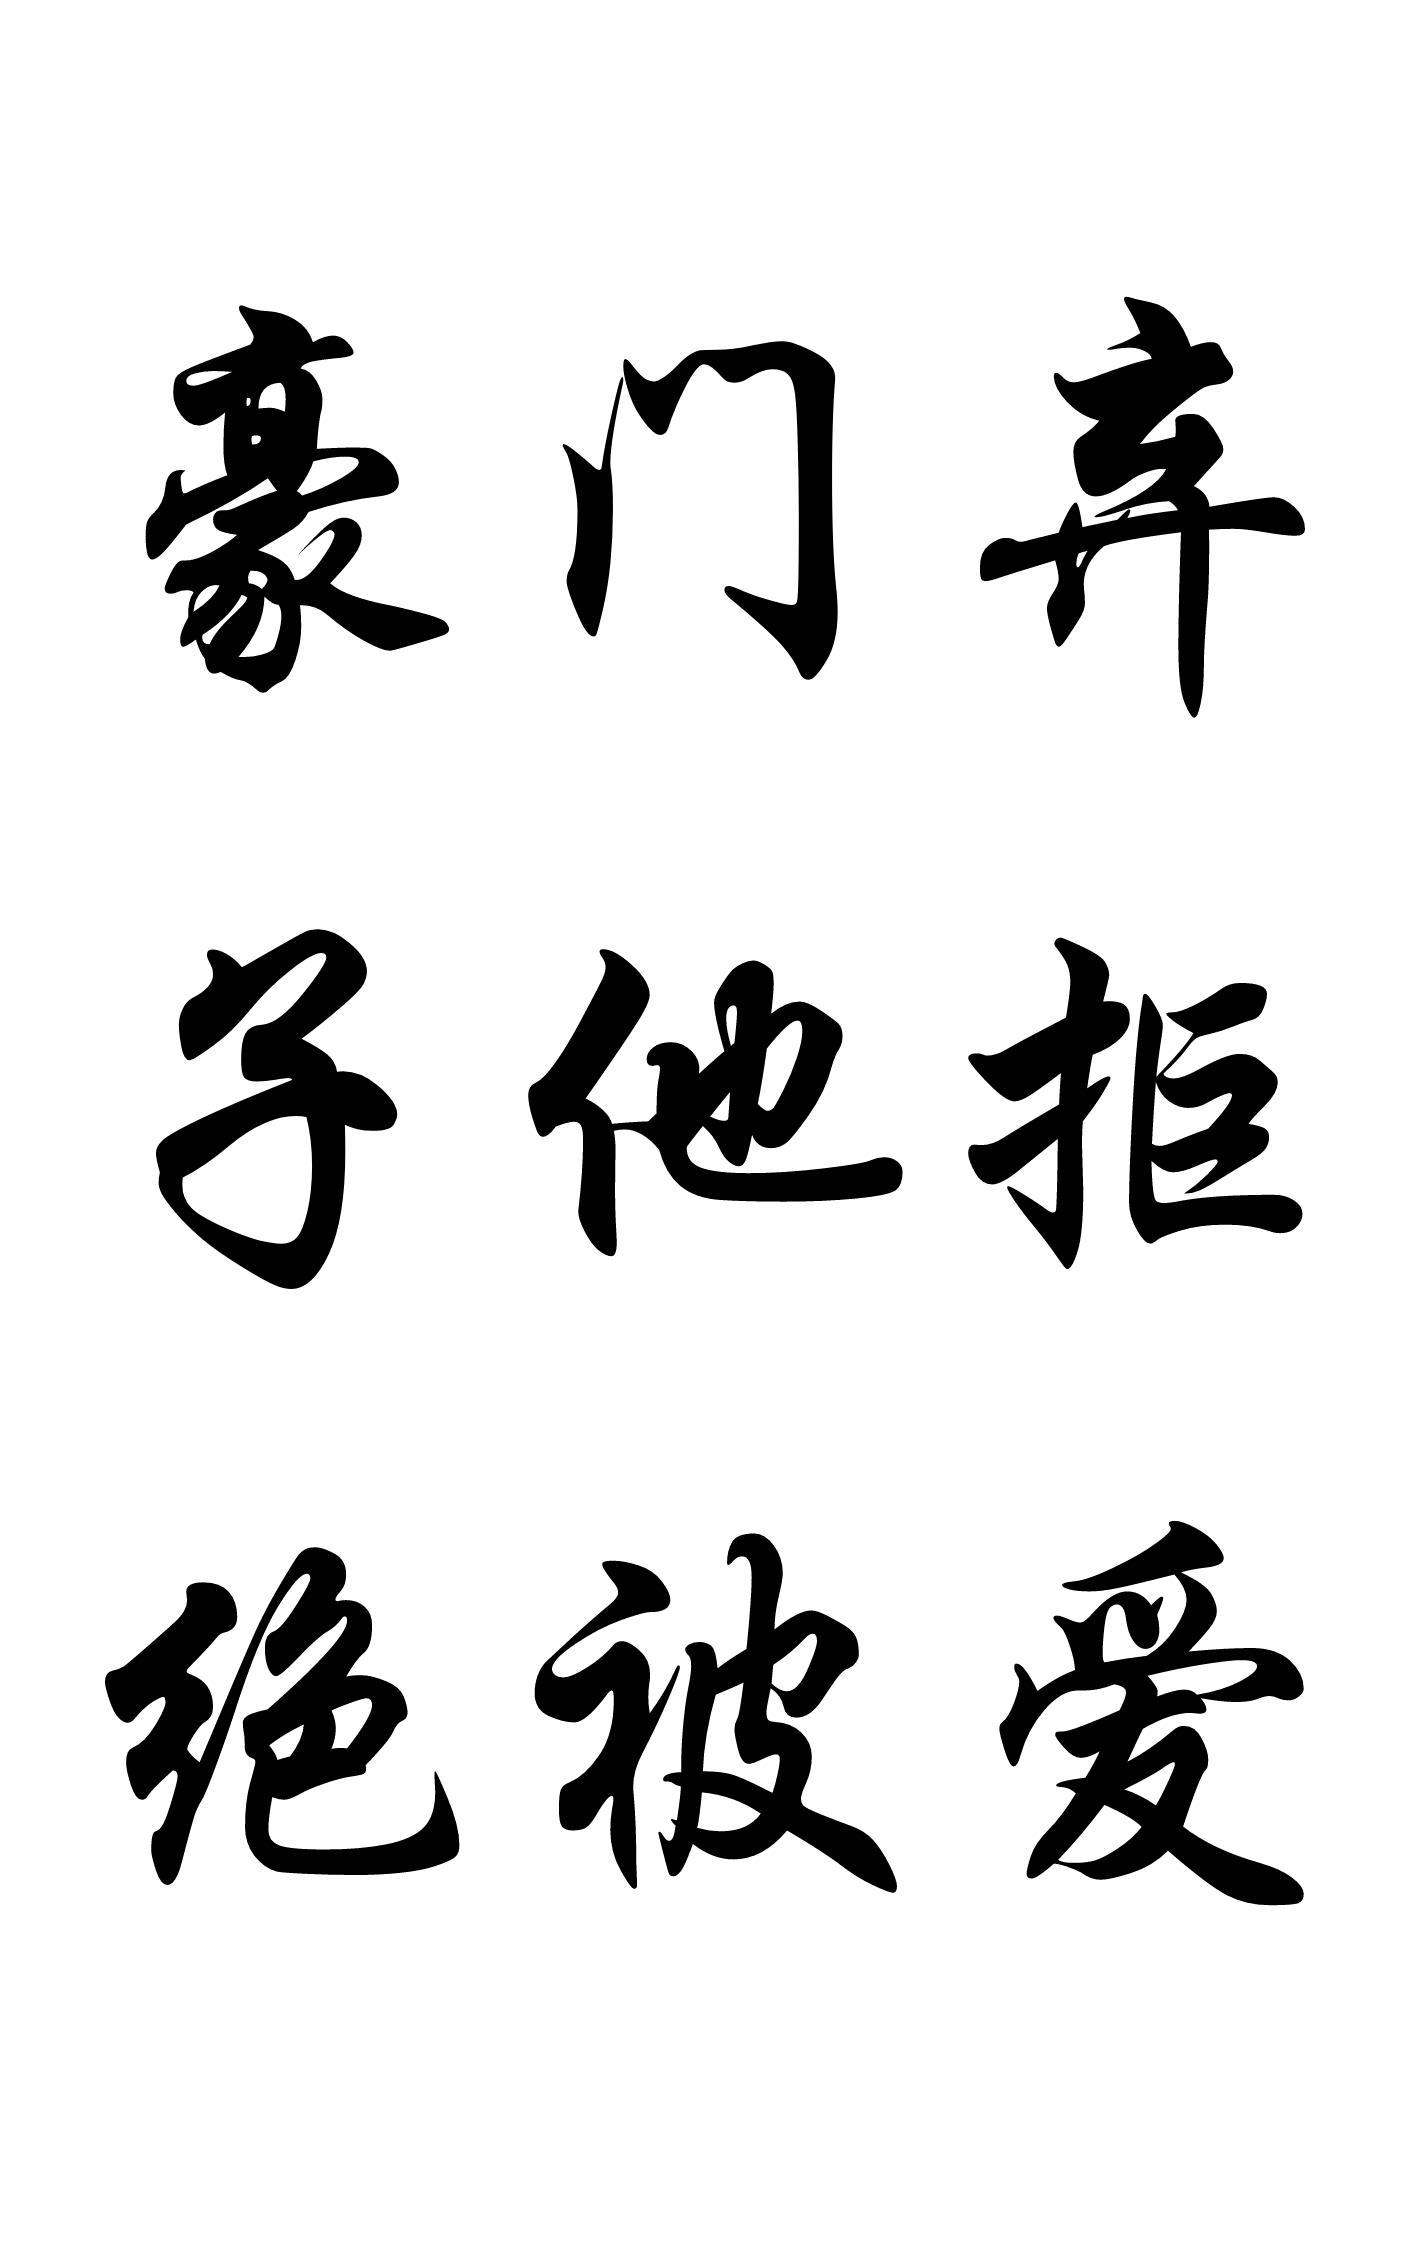 豪门弃
子他拒
绝被爱